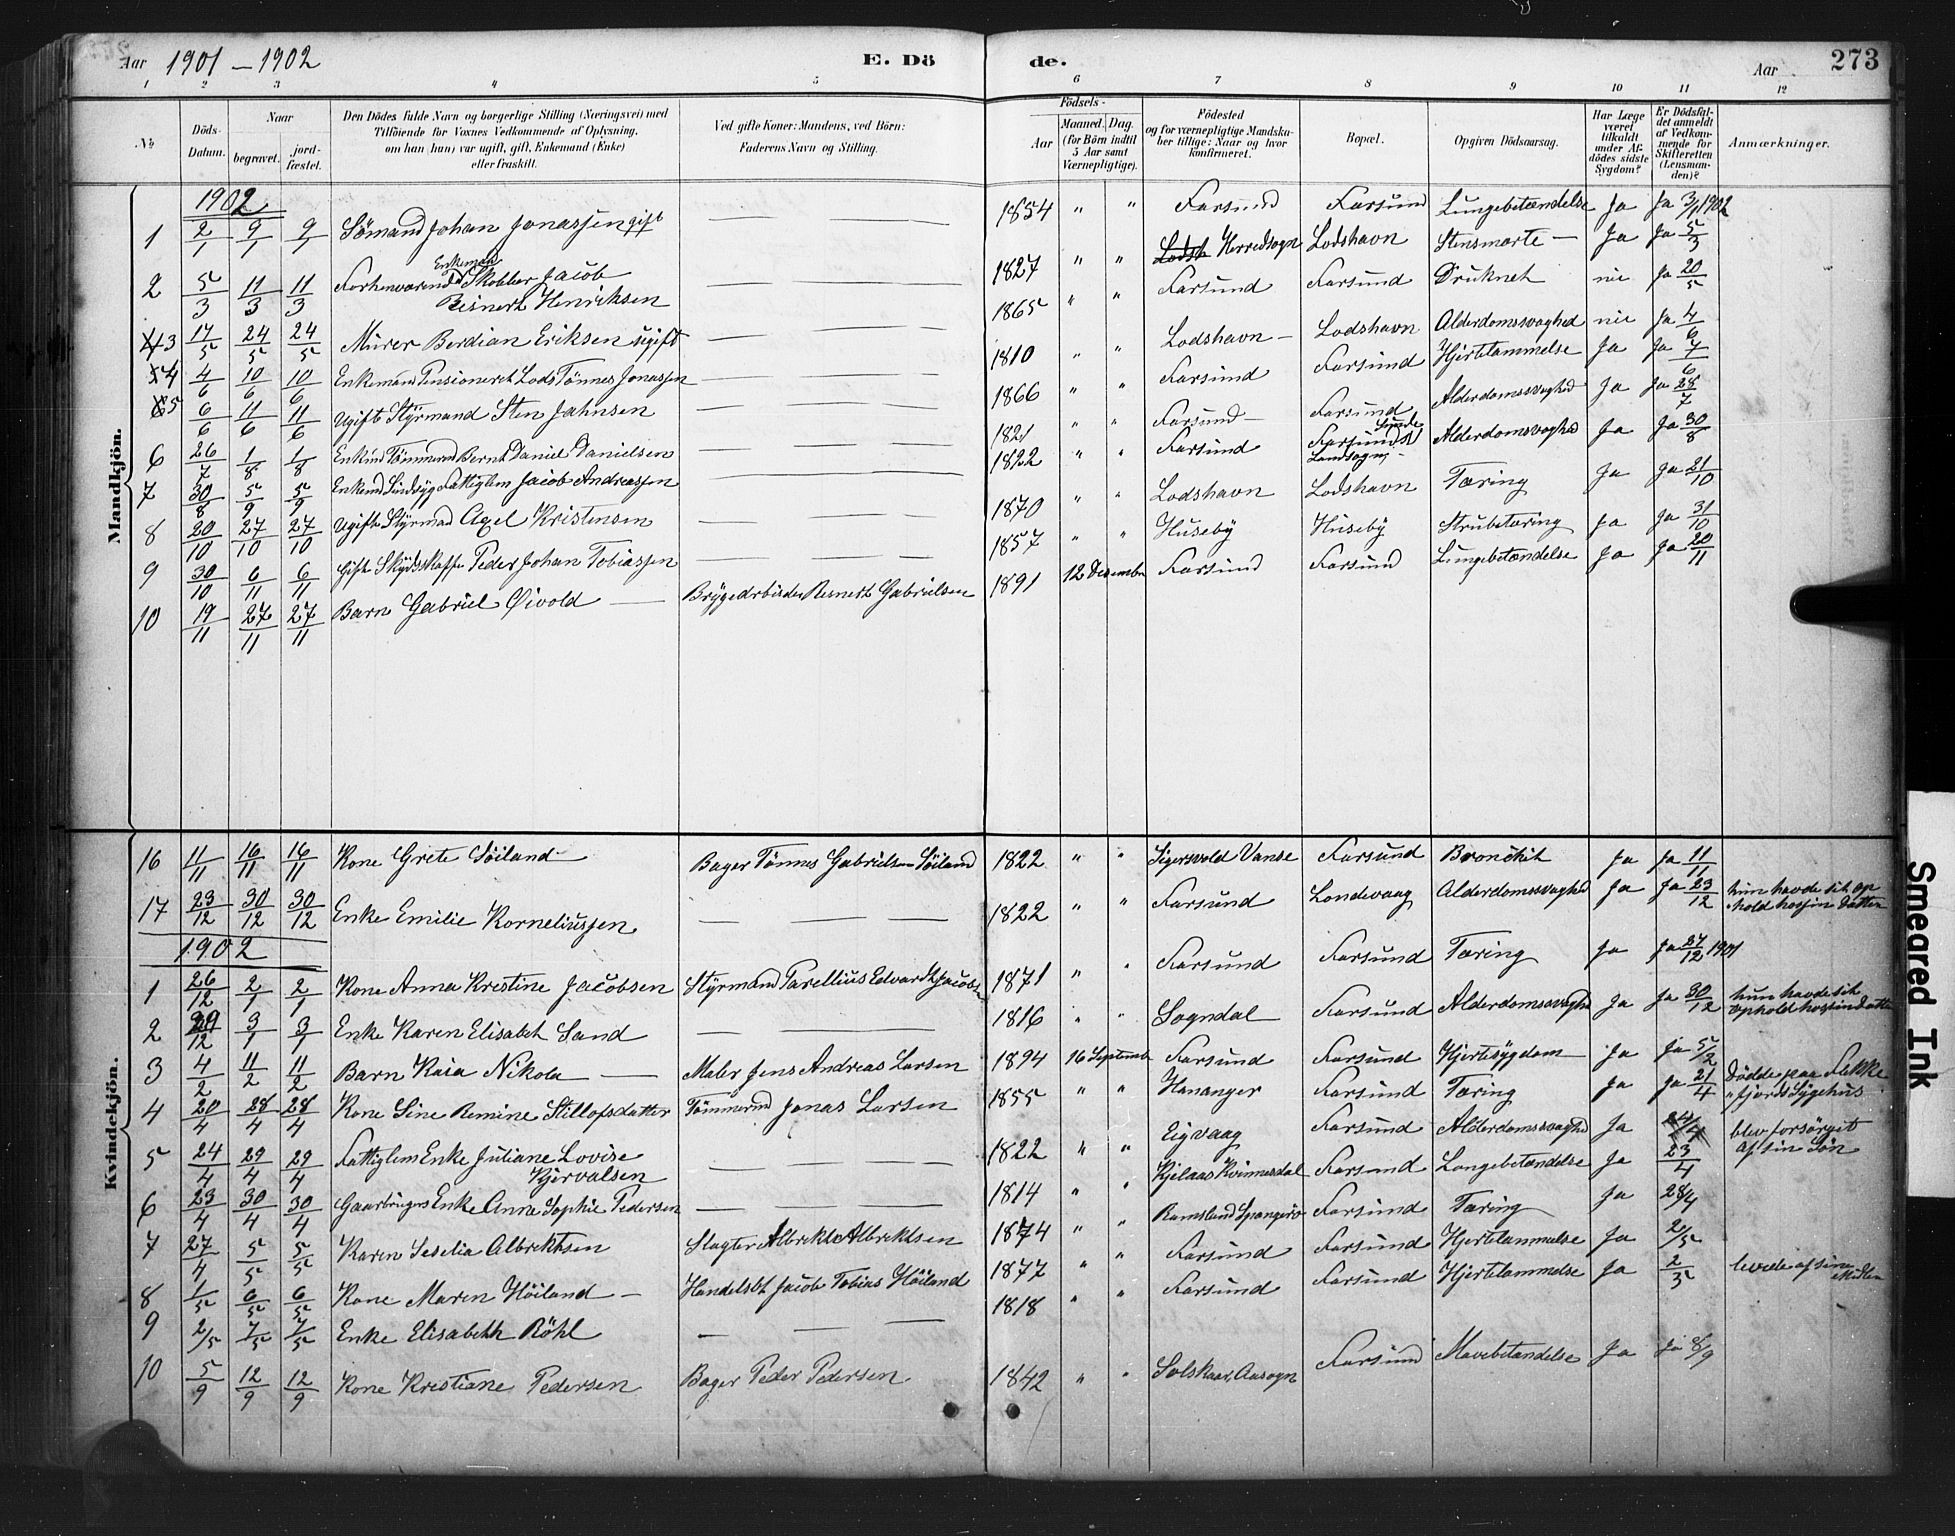 Aar 1901 – 1902 E. Dö de. Aar 273
1 2 3 4 5 6 7 8 9 10 11 12
No Döds-Datum. Naar begravet. jordfæstet. Den Dödes fulde Navn og borgerlige Stilling (Næringsvei) med Tilföiende for Voxnes Vedkommende af Oplysning, om han (hun) var ugift, gift, Enkemand (Enke) eller fraskilt. Ved gifte Koner: Mandens, ved Börn: Faderens Navn og Stilling. Födsels- Aar Maaned. Dag. (for Börn indtil 5 Aar samt Værnepligtige). Födested og for værnepligtige Mandskaber tillige: Naar og hvor konfirmeret. Bopæl. Opgiven Dödsaarsag. Har Læge været tilkaldt under Afdödes sidste Sygdom? Er Dödsfaldet anmeldt af Vedkommende for Skifteretten (Lensmanden)? Anmærkninger.
Mandkjön.
1902
1 2/1 9/1 9/1 Sömand Johan Jonassen gift — — — 1854 " " Farsund Farsund Lungebetændelse Ja Ja 3/1 1902
2 5/3 11/3 11/3 Forhenværend Enkemand Skolelær Jacob Reinert Henriksen — — — 1827 " " Herredsogn Lodshavn Stensmerte — Ja Ja 5/3
3 17/5 24/5 24/5 Mürer Berdian Eriksen ugift — — — 1865 " " Farsund Farsund Druknet nei Ja 20/5
4 4/6 10/6 10/6 Enkemand Pensioneret Lods Tönnes Jonassen — — — 1810 " " Lodshavn — Lodshavn Alderdomssvaghed nei Ja 4/6
5 6/6 11/6 11/6 Ugift Styrmand Sten Jahnsen — — — 1866 " " Farsund Farsund Hjertelammelse Ja Ja 7/6
6 26/7 1/8 1/8 Enkmd Tömmermd Bernt Daniel Danielsen — — — 1821 " " Farsund — Farsund Alderdomssvaghed Ja Ja 28/7
7 30/8 5/9 5/9 Enkemd Sindsyg Fattiglem Jacob Andreassen — — — 1822 " " Farsund Farsunds Landsogn — Alderdomssvaghed Ja Ja 30/8
8 20/10 27/10 27/10 Ugift Styrmad Axel Kristensen — — — 1870 " " Lodshavn Lodshavn Tæring Ja Ja 21/10
9 30/10 6/11 6/11 Gift Skydsskaffer Peder Johan Tobiassen — — — 1857 " " Huseby Huseby Strubetæring Ja Ja 31/10
10 19/11 27/11 27/11 Barn Gabriel Öivold — Bryggearbeider Reinert Gabrielsen 1891 12 Desember Farsund Farsund Lungebetændelse Ja Ja 20/11
Kvindekjön.
16 11/11 16/11 16/11 Kone Grete Söiland — Bager Tönnes Gabrielsen Söiland 1822 " " Sigersvold Vanse Farsund Bronchit Ja Ja 11/11
17 23/12 30/12 30/12 Enke Emilie Korneliussen — — — 1822 " " Farsund Londevaag Alderdomssvaghed Ja Ja 23/12 hun havde sit ophold hos sin datter
1902
1 26/12 2/1 2/1 Kone Anna Kristine Jacobsen Styrmand Tarellius Edvardt Jacobsen 1871 " " Farsund Farsund Tæring Ja Ja 27/12 1901
2 29/12 3/1 3/1 Enke Karen Elisabet Sand — — — 1816 " " Sogndal Farsund Alderdomssvaghed Ja Ja 30/12 hun havde sit ophold hos sin datter
3 4/2 11/2 11/2 Barn Kaia Nikola — Maler Jens Andreas Larsen 1894 16 Septembr Farsund Farsund Hjertesygdom Ja Ja 5/2
4 20/4 28/4 28/4 Kone Sine Remine Stillofsdatter Tömmermd Jonas Larsen 1855 " " Hananger Farsund Tæring Ja Ja 21/4 Dödde paa Flekkefjords Sygehus
5 24/4 29/4 29/4 Fattiglem Enke Juliane Lovise Kjervalsen — — — 1822 " " Eigvaag Farsund Alderdomssvaghed Ja 24/4 blev forsörget af sin Sön
6 23/4 30/4 30/4 Gaarbrugers Enke Anne Sophie Pedersen — — — 1814 " " Kjelaas Kvinnesdal Farsund Longebetændelse Ja 23/4
7 27/4 5/5 5/5 Karen Seselia Albrektsen Slagter Albrekt Albrektsen 1874 " " Ramsland Spangerö Farsund Tæring Ja 28/4
8 1/5 6/5 6/5 Kone Maren Höiland — Handelsbt Jacob Tobias Höiland 1877 " " Farsund Farsund Hjertelammelse Ja 2/5
9 2/5 7/5 7/5 Enke Elisabeth Röhl — — — 1818 " " Farsund Farsund Hjertelammelse Ja 2/5 levede af sine Midler
10 5/9 12/9 12/9 Kone Kristiane Pedersen Bager Peder Pedersen 1842 " " Solskaar, Ausogn Farsund Mavebetændelse Ja Ja 8/9
Smeared Ink